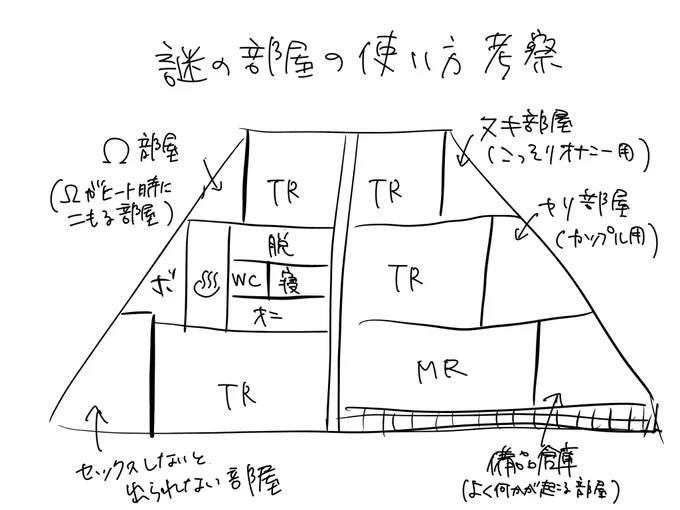 謎の部屋の使い方考察
Ω部屋
(Ωがヒート時に
こもる部屋)
ヌキ部屋
(こっそりオナニー用)
ヤリ部屋
(カップル用)
TR
TR
脱
ボ
♨
WC
寝
オニ
TR
TR
MR
セックスしないと
出られない部屋
備品倉庫
(よく何かが起こる部屋)